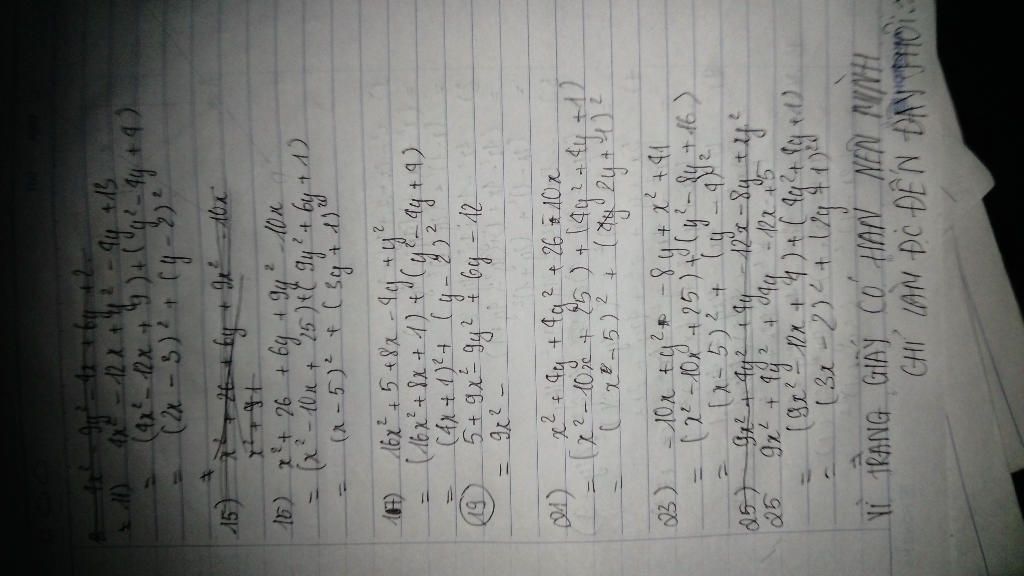 11) 4x² - 12x + y² - 4y + 13
= (4x² - 12x + 9) + (y² - 4y + 4)
= (2x - 3)² + (y - 2)²
15) x² + 26 + 6y + 9x² - 10x
15) x² + 26 + 6y + 9y² - 10x
= (x² - 10x + 25) + (9y² + 6y + 1)
= (x - 5)² + (3y + 1)²
17) 16x² + 5 + 8x - 4y + y²
= (16x² + 8x + 1) + (y² - 4y + 4)
= (4x + 1)² + (y - 2)²
19) 5 + 9x² - 9y² + 6y - 12
= 9x² -
21) x² + 4y + 4y² + 26 - 10x
= (x² - 10x + 25) + (4y² + 4y + 1)
= (x - 5)² + (2y + 1)²
23) - 10x + y² - 8y + x² + 41
= (x² - 10x + 25) + (y² - 8y + 16)
= (x - 5)² + (y - 4)²
25) 9x² + 4y² + 4y - 12x - 8y + 4y²
25 9x² + 4y² + 4y - 12x + 5
= (9x² - 12x + 4) + (4y² + 4y + 1)
= (3x - 2)² + (2y + 1)²
VÌ TRANG GIẤY CÓ HẠN NÊN MÌNH
CHỈ LÀM ĐC ĐẾN ĐÂY THÔI